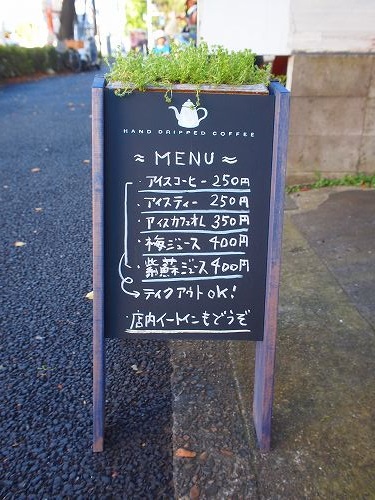 HAND DRIPPED COFFEE
≈ MENU ≈
・アイスコーヒー 250円
・アイスティー 250円
・アイスカフェオレ 350円
・梅ジュース 400円
・紫蘇ジュース 400円
テイクアウトOK!
・店内イートインもどうぞ